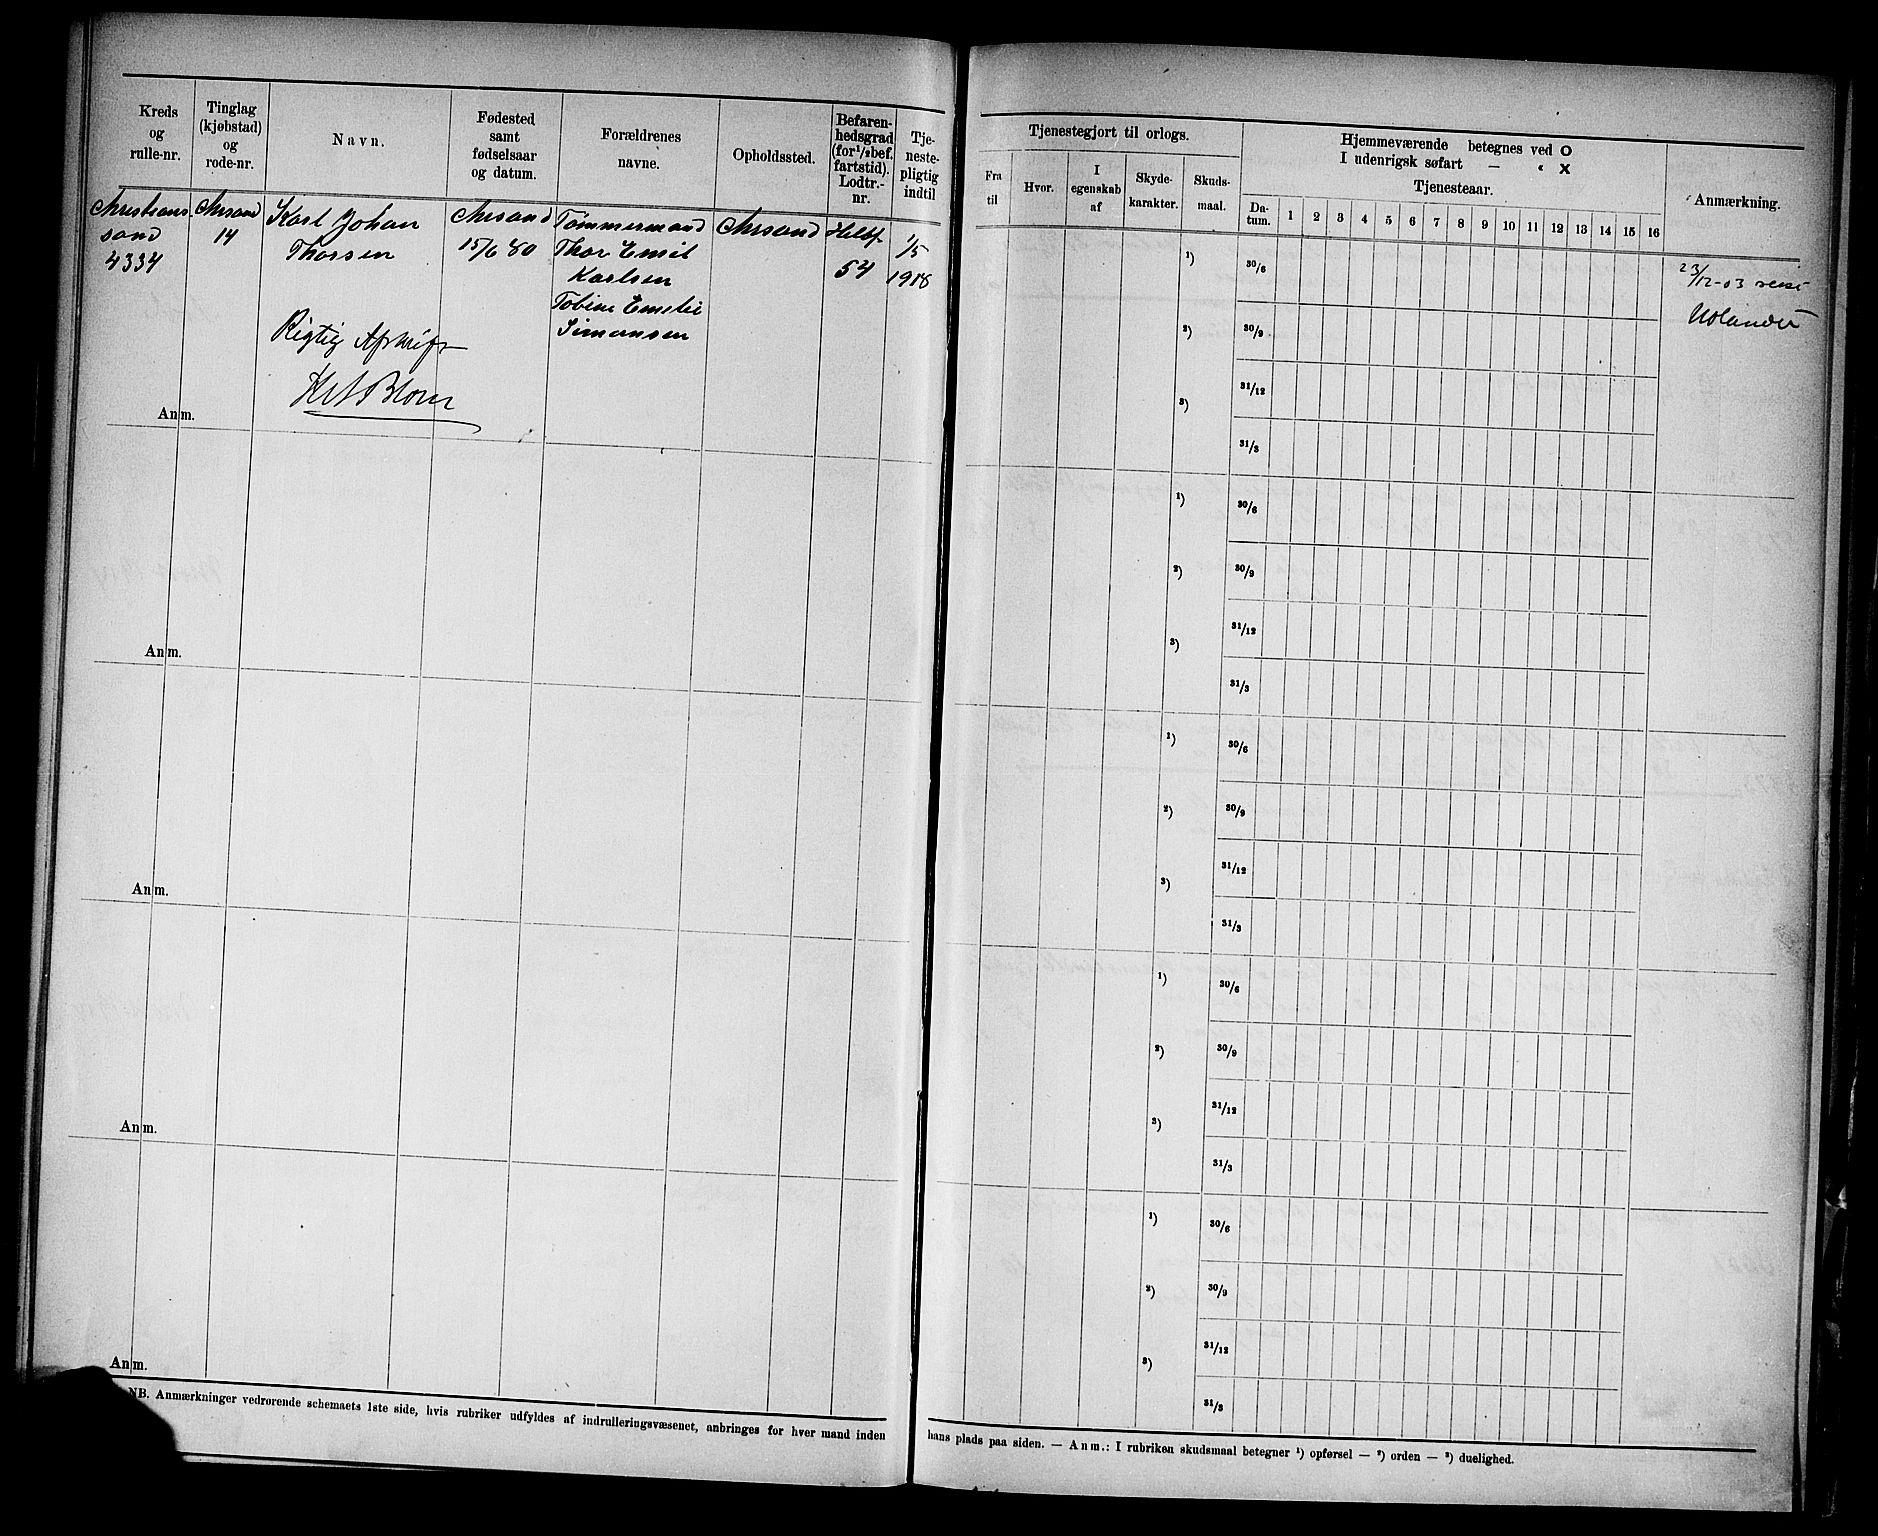 Kreds
og
rulle-nr.
Tinglag
(kjøbstad)
og
rode-nr.
Navn.
Fødested
samt
fødselsaar
og datum.
Forældrenes
navne.
Opholdssted.
Befaren-
hedsgrad
(for ½ bef.
fartstid).
Lodtr.-
nr.
Tje-
neste-
pligtig
indtil
Christians
sand
4334
Chrsand
14
Karl Johan
Thorsen
Chrsand
15/6 80
Tømmermand
Thor Emil
Karlsen
Tobine Emelie
Simonsen
Chrsand
Helbf.
54
1/5
1918
Rigtig Afskrift
Anm.
Anm.
Anm.
Anm.
Anm.
NB. Anmærkninger vedrørende schemaets 1ste side, hvis rubriker udfyldes af indrulleringsvæsenet, anbringes for hver mand inden
Tjenestegjort til orlogs.
Fra
til
Hvor.
I
egenskab
af
Skyde-
karakter.
Skuds-
maal.
Hjemmeværende betegnes ved O
I udenrigsk søfart — " X
Tjenesteaar.
Da-
tum.
1 2 3 4 5 6 7 8 9 10 11 12 13 14 15 16
Anmærkning.
1) 30/6
2) 30/9
31/12
3)
31/3
23/12-03 reist
Udlandet
1) 30/6
2) 30/9
31/12
3)
31/3
1) 30/6
2) 30/9
31/12
3)
31/3
1) 30/6
2) 30/9
31/12
3)
31/3
1) 30/6
2) 30/9
31/12
3)
31/3
hans plads paa siden. — Anm.: I rubriken skudsmaal betegner 1) opførsel — 2) orden — 3) duelighed.